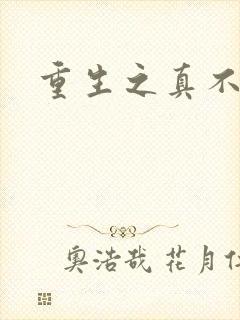 重生之真不
奥浩哉 花月仁